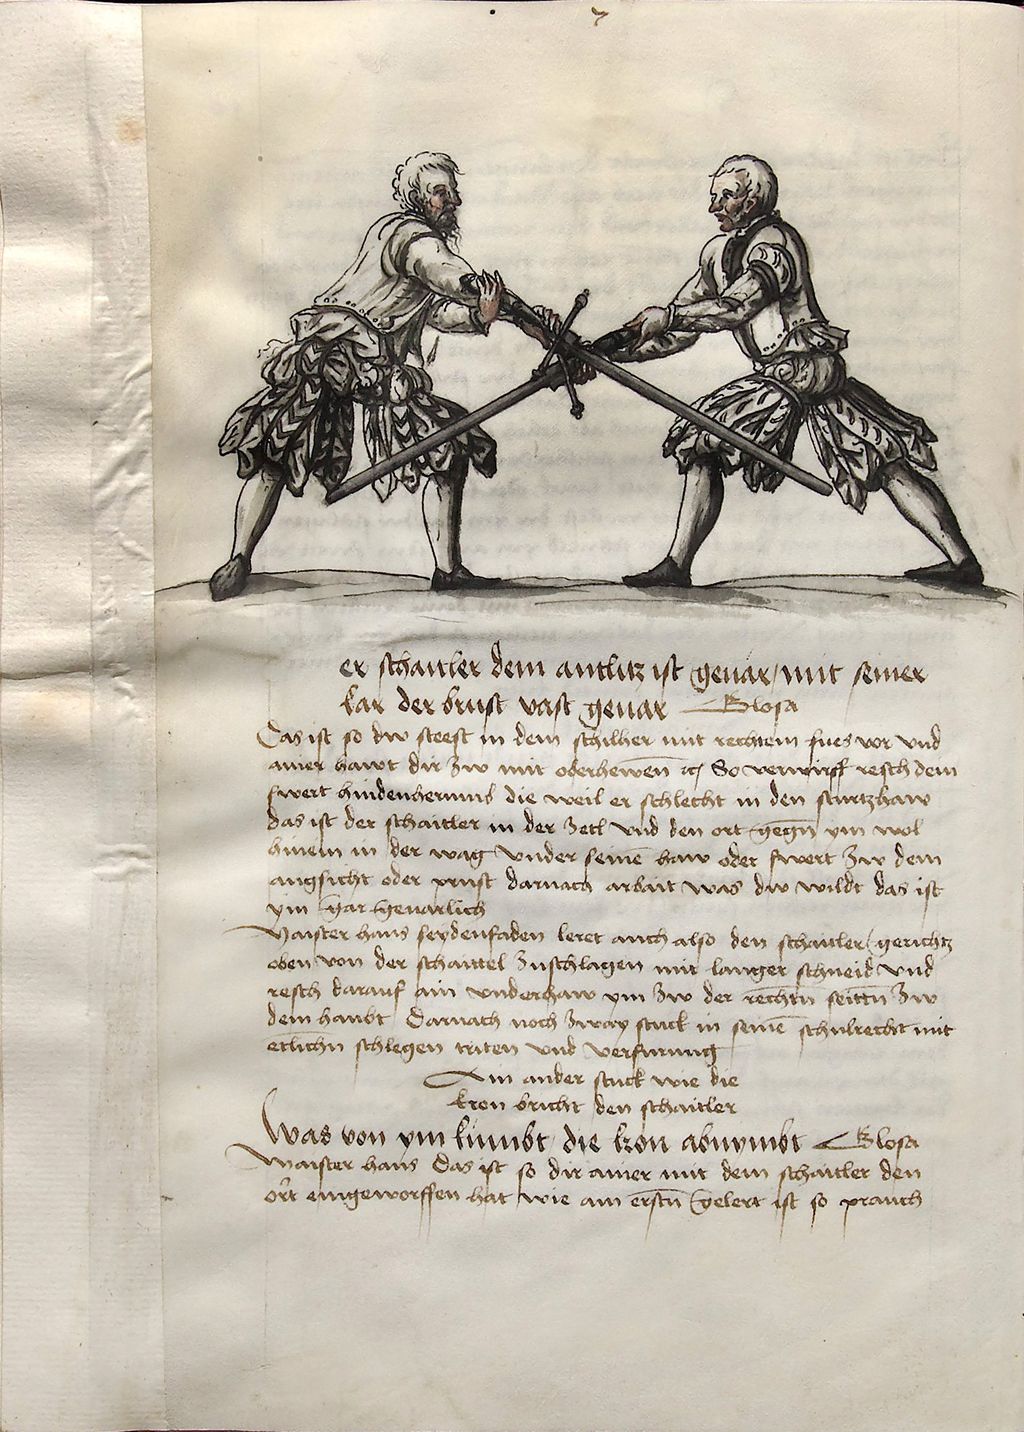 er schaitler dem antlitz ist gevar / mit seiner
kar der brust vast gevar Glosa
Das ist so dw steest in dem schilher mit rechtem fues vor vnd
ainer hawt dir zw mit oberhewen So verwirff resch dein
swert hindenherumb die weil er schlecht in den sturtzhaw
das ist der schaitler in der zetl vnd den ort gegn̄ ym wol
hinein in der wag vnder seinē haw oder swert zw dem
angsicht oder prust darnach arbait was dw wildt das ist
ym gar gevarlich
Maister hans seydenfaden leret auch also den schaitler / gerichtz
oben von der schaittel zuschlagen mit langer schneid vnd
resch darauf ain vnderhaw ym zw der rechtn̄ seittn̄ zw
dem haubt Darnach noch zway stuck in seinē schulrecht mit
etlichn̄ schlegen triten vnd verfurung
Ain ander stuck wie die
kron bricht den schaitler
Was von ym kumbt / die kron abnymbt Glosa
Maister hans Das ist so dir ainer mit dem schaitler den
ort eingeworffen hat wie am erstn̄ gelert ist so prauch